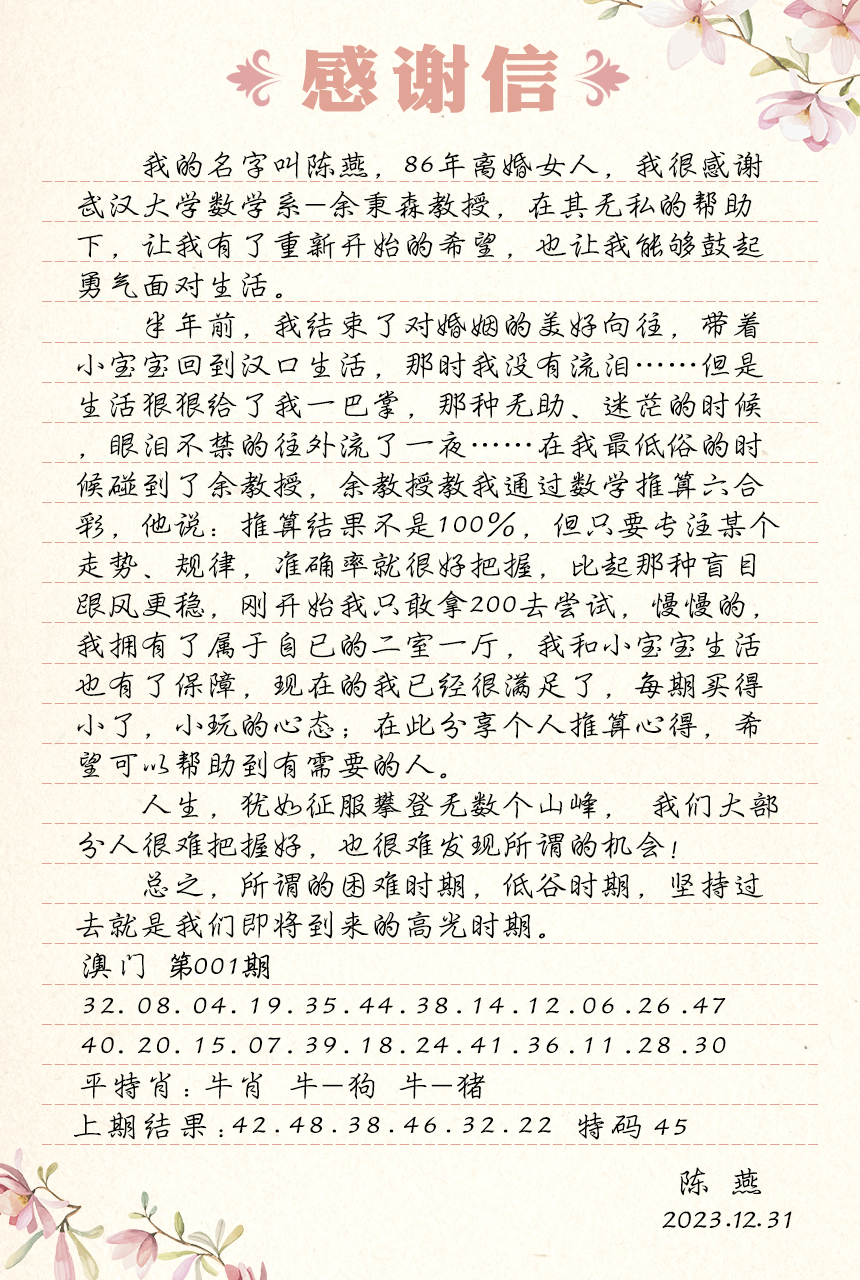 感谢信
我的名字叫陈燕，86年离婚女人，我很感谢
武汉大学数学系—余秉森教授，在其无私的帮助
下，让我有了重新开始的希望，也让我能够鼓起
勇气面对生活。
半年前，我结束了对婚姻的美好向往，带着
小宝宝回到汉口生活，那时我没有流泪……但是
生活狠狠给了我一巴掌，那种无助、迷茫的时候
，眼泪不禁的往外流了一夜……在我最低俗的时
候碰到了余教授，余教授教我通过数学推算六合
彩，他说：推算结果不是100%，但只要专注某个
走势、规律，准确率就很好把握，比起那种盲目
跟风更稳，刚开始我只敢拿200去尝试，慢慢的，
我拥有了属于自已的二室一厅，我和小宝宝生活
也有了保障，现在的我已经很满足了，每期买得
小了，小玩的心态；在此分享个人推算心得，希
望可以帮助到有需要的人。
人生，犹如征服攀登无数个山峰， 我们大部
分人很难把握好，也很难发现所谓的机会！
总之，所谓的困难时期，低谷时期，坚持过
去就是我们即将到来的高光时期。
澳门 第001期
32.08.04.19.35.44.38.14.12.06.26.47
40.20.15.07.39.18.24.41.36.11.28.30
平特肖：牛肖 牛—狗 牛—猪
上期结果：42.48.38.46.32.22 特码 45
陈 燕
2023.12.31